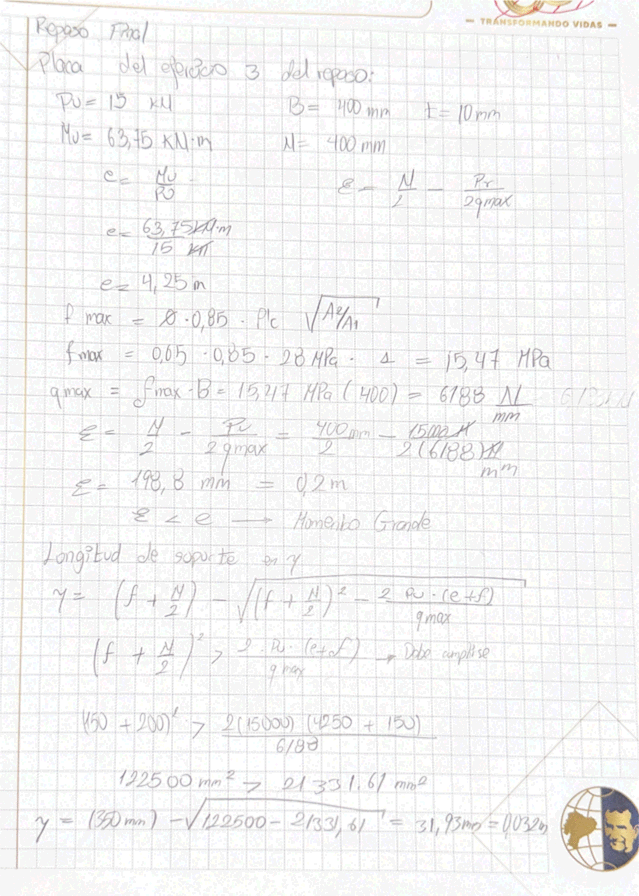 — TRANSFORMANDO VIDAS —
Repaso Final
Placa del ejercicio 3 del repaso:
Pu = 15 kN B = 400 mm t = 10mm
Mu = 63,75 KN·m N = 400 mm
e = Mu/Pu ε = N/2 - Pr/2qmax
e = 63,75kN·m/15 kN
e = 4,25 m
f max = ø·0,85 · f'c √A2/A1
fmax = 0,65 · 0,85 · 28 MPa · 1 = 15,47 MPa
qmax = fmax·B = 15,47 MPa (400) = 6188 N/mm
ε = N/2 - Pu/2qmax = 400mm/2 - 15000 N/2(6188)N/mm
ε = 198,8 mm = 0,2 m
ε < e → Momento Grande
Longitud de soporte en y
y = (f + N/2) - √(f + N/2)² - 2 Pu·(e+f)/qmax
(f + N/2)² > 2·Pu·(e+f)/qmax → Debe cumplise
(150 + 200)² > 2(15000)(4250 + 150)/6188
122500 mm² > 21331,61 mm²
y = (350 mm) - √122500 - 21331,61 = 31,93mm = 0,032m